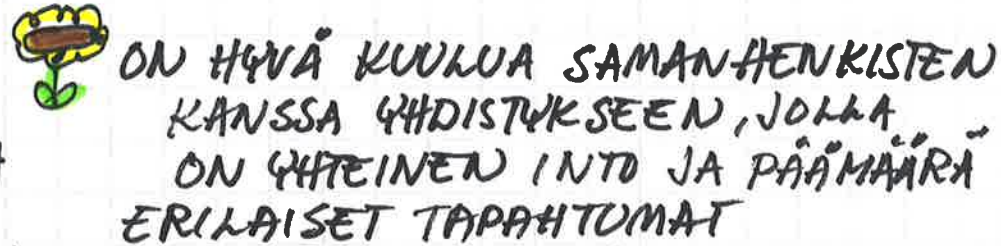 ON HYVÄ KUULUA SAMANHENKISTEN
KANSSA YHDISTYKSEEN, JOLLA
ON YHTEINEN INTO JA PÄÄMÄÄRÄ
ERILAISET TAPAHTUMAT